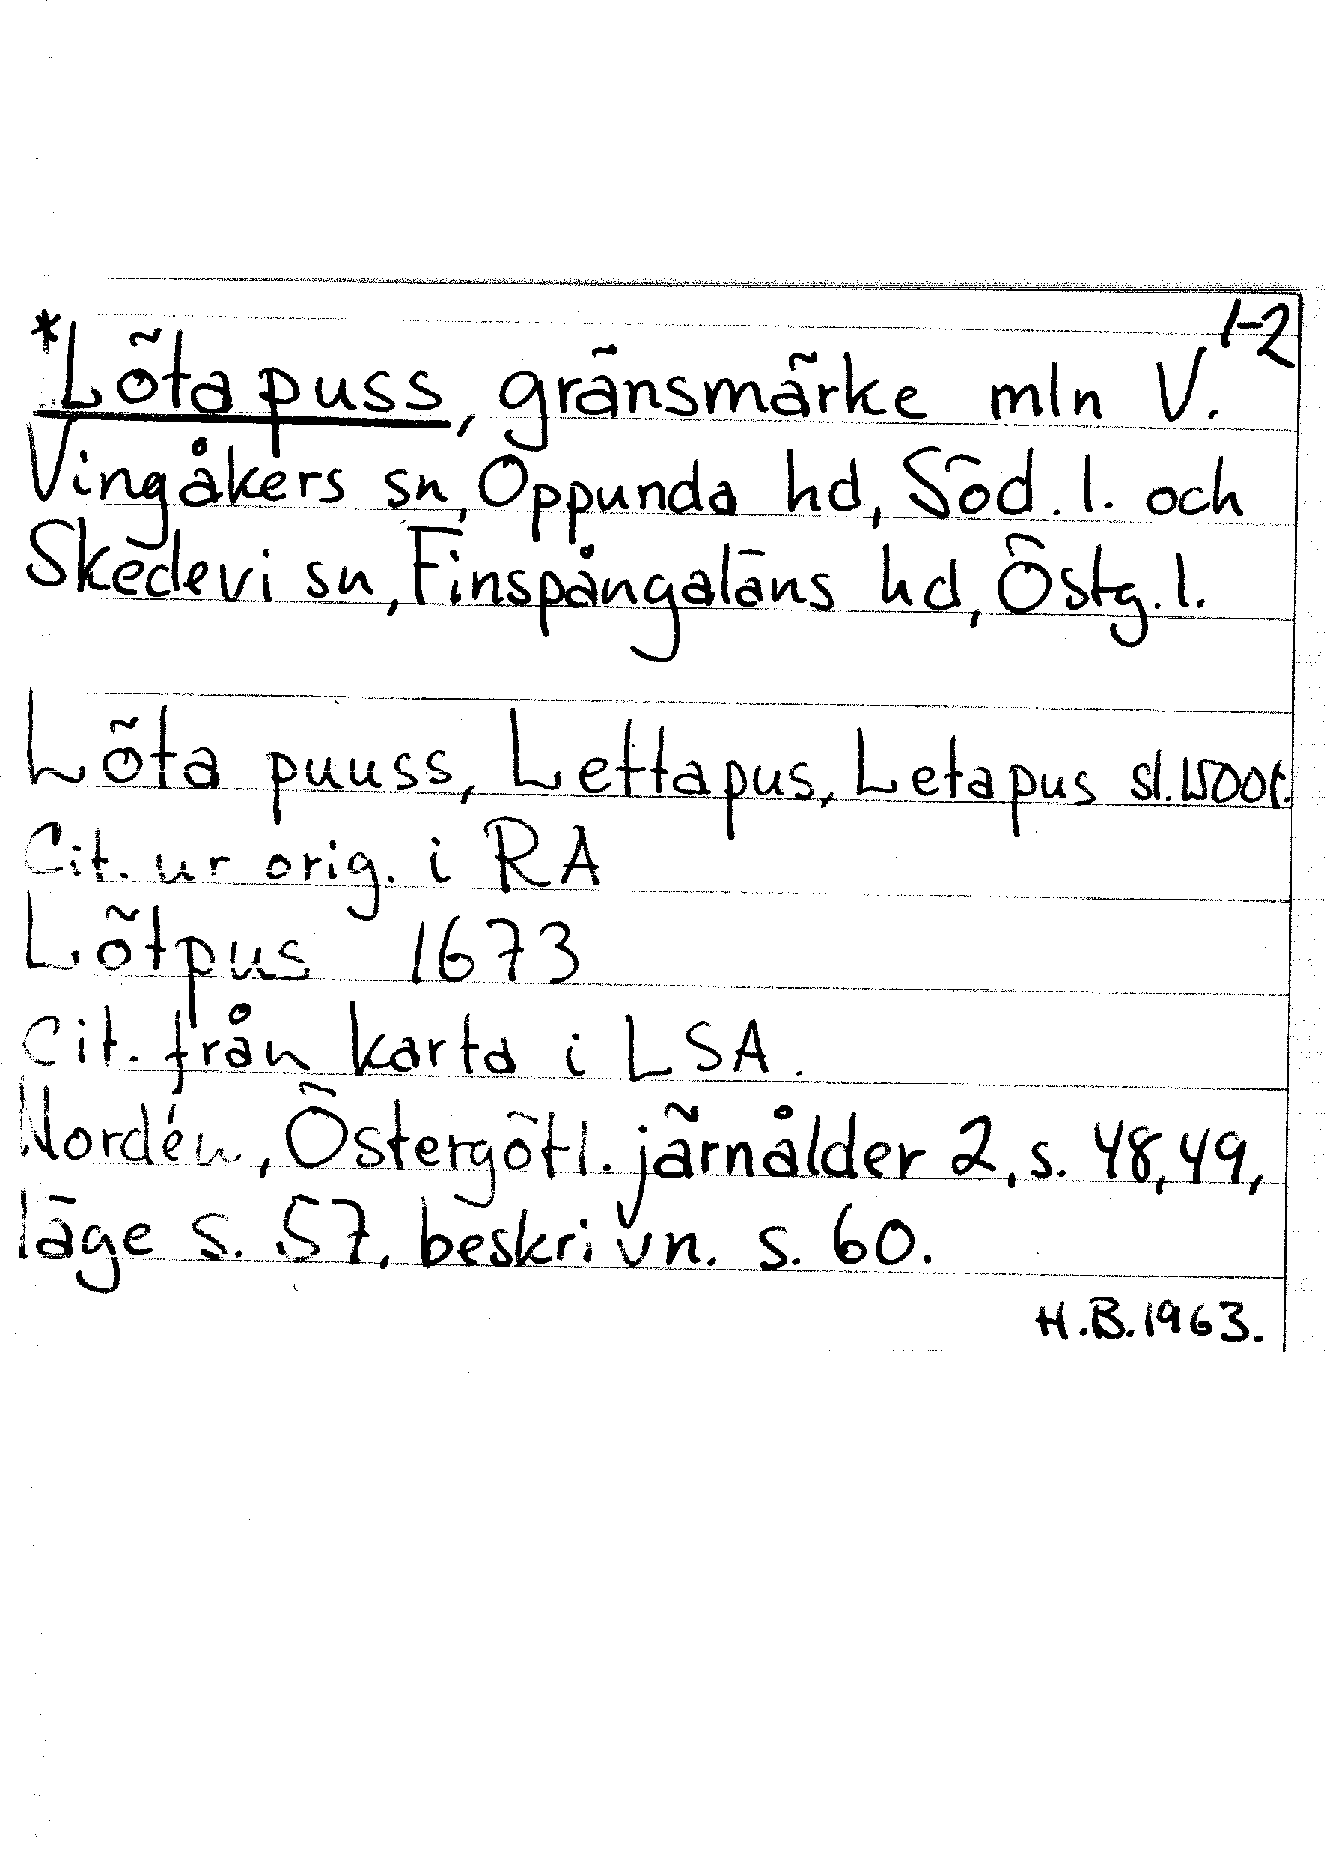 1-2
*Löta puss, gränsmärke mln V.
Vingåkers sn, Oppunda hd, Söd. l. och
Skedevi sn, Finspångaläns hd, Östg. l.
Löta puuss, Lettapus, Letapus sl. 1500t.
Cit. ur orig. i RA
Lötpus 1673
Cit. från karta i LSA.
Nordén, Östergötl. järnålder 2, s. 48, 49,
läge s. 57, beskrivn. s. 60.
H.B. 1963.